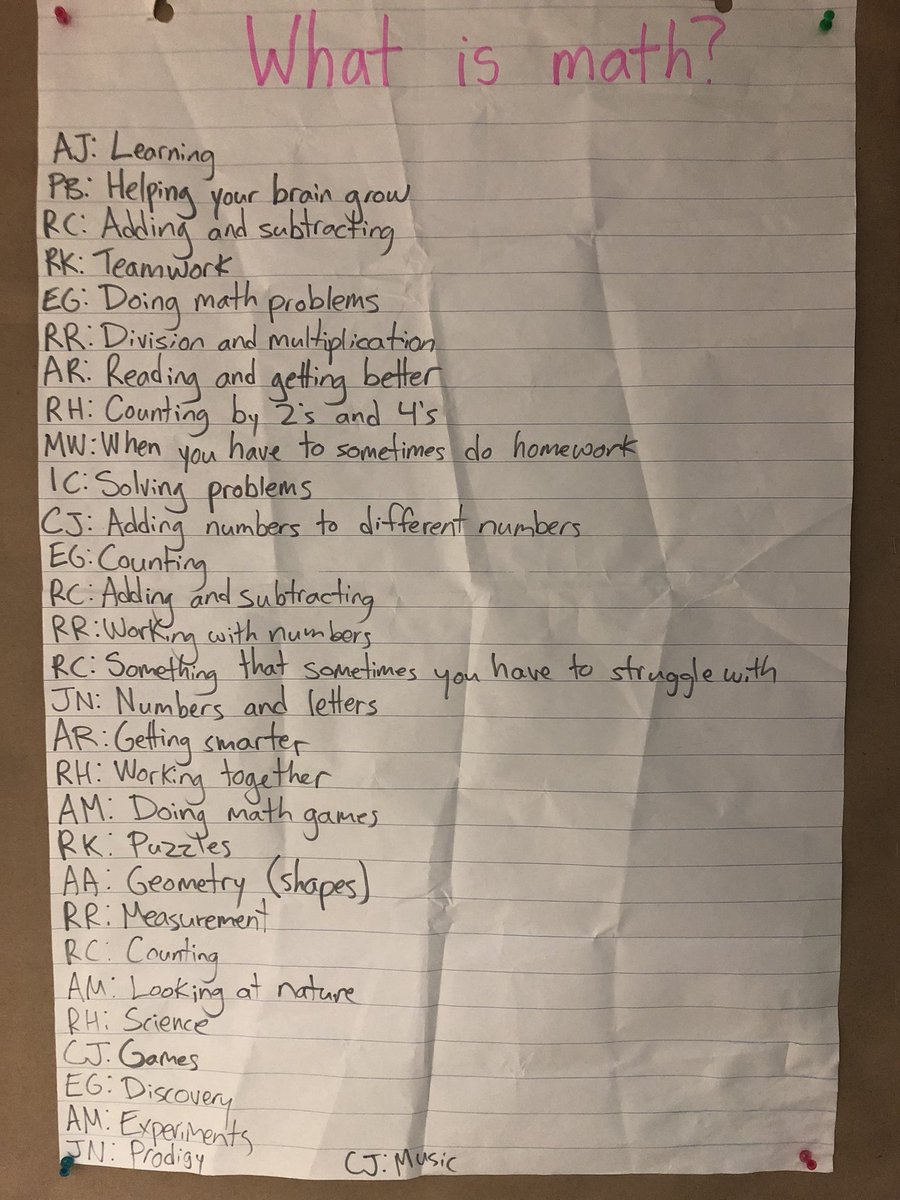 What is math?
AJ: Learning
PB: Helping your brain grow
RC: Adding and subtracting
RK: Teamwork
EG: Doing math problems
RR: Division and multiplication
AR: Reading and getting better
RH: Counting by 2's and 4's
MW: When you have to sometimes do homework
IC: Solving problems
CJ: Adding numbers to different numbers
EG: Counting
RC: Adding and subtracting
RR: Working with numbers
RC: Something that sometimes you have to struggle with
JN: Numbers and letters
AR: Getting smarter
RH: Working together
AM: Doing math games
RK: Puzzles
AA: Geometry (shapes)
RR: Measurement
RC: Counting
AM: Looking at nature
RH: Science
CJ: Games
EG: Discovery
AM: Experiments
JN: Prodigy CJ: Music